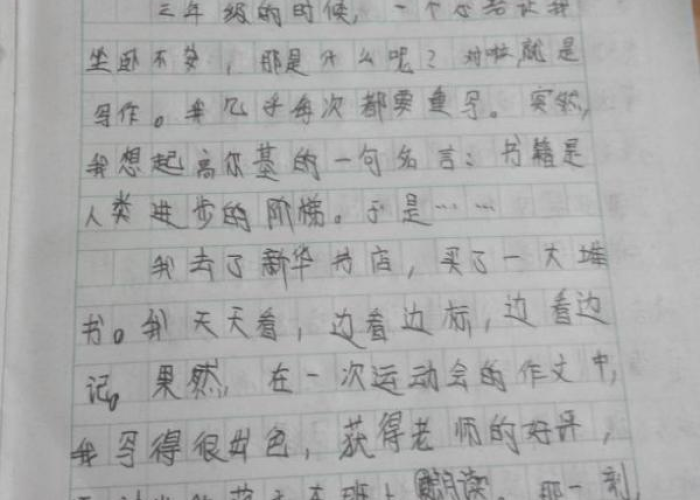 三年级的时候，一个总是让我
坐卧不安，那是什么呢？对啦，就是
写作。我几乎每次都要重写。突然，
我想起高尔基的一句名言：书籍是
人类进步的阶梯。于是……
我去了新华书店，买了一大堆
书。我天天看，边看边标，边看边
记。果然，在一次运动会的作文中，
我写得很出色，获得老师的好评，
朗读，那一刻